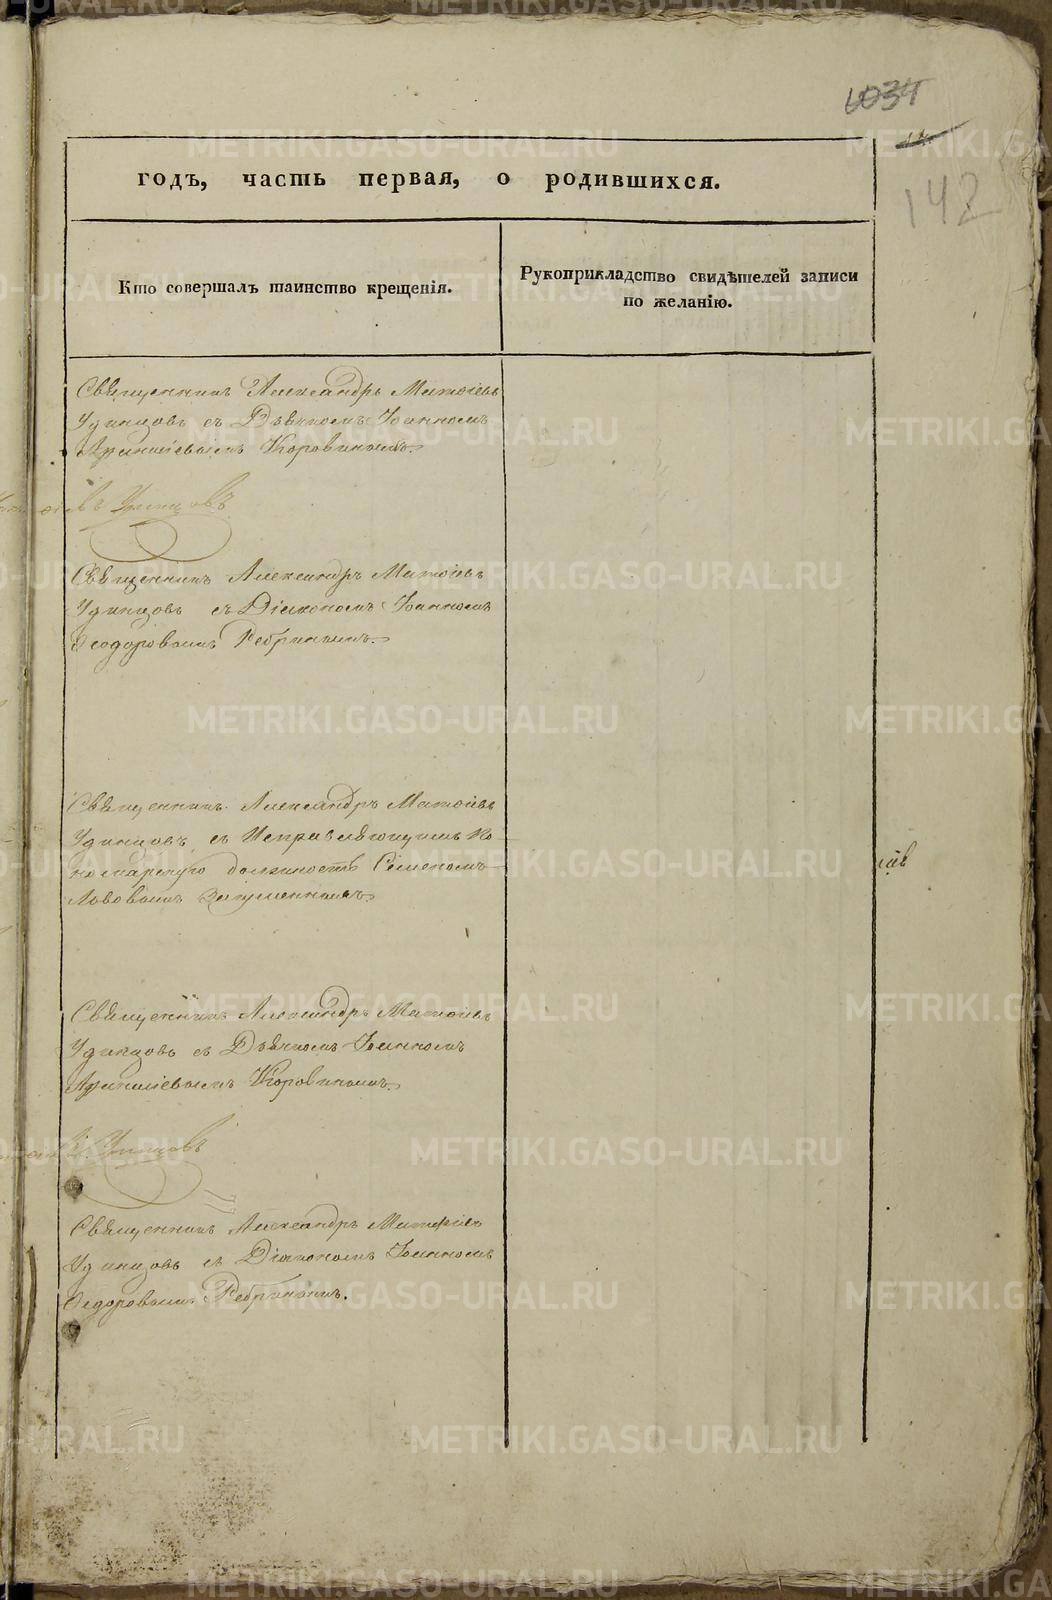 1034
142
годъ, часть первая, о родившихся.
Кто совершалъ таинство крещенія.
Рукоприкладство свидѣтелей записи
по желанію.
Священникъ Александръ Матѳіевъ
Удинцовъ съ Дьячкомъ Іоанномъ
Коровинымъ.
Удинцовъ
Священникъ Александръ Матѳіевъ
Удинцовъ съ Діакономъ Іоанномъ
Ѳеодоровымъ Ребринымъ.
Священникъ Александръ Матѳіевъ
Удинцовъ съ Исправляющимъ По
номарскую должность Семеномъ
Львовымъ
Священникъ Александръ Матѳіевъ
Удинцовъ съ Дьячкомъ Іоанномъ
Коровинымъ.
Удинцовъ
Священникъ Александръ Матѳіевъ
Удинцовъ съ Діакономъ Іоанномъ
Ѳедоровымъ Ребринымъ.
METRIKI.GASO-URAL.RU